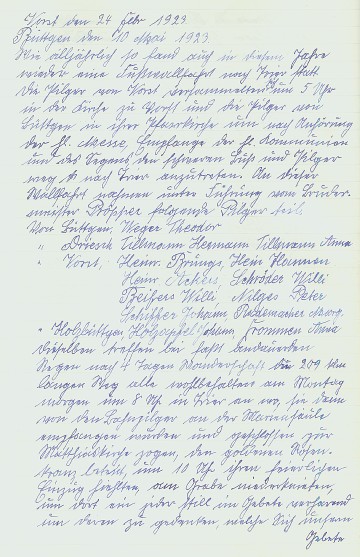 Vorst den 24 Febr 1923
Büttgen den 10 Mai 1923
Wie alljährlich so fand auch in diesem Jahre
wieder eine Fußwallfahrt nach Trier statt
Die Pilger von Vorst versammelten um 5 Uhr
in der Kirche zu Vorst und die Pilger von
Büttgen in ihrer Pfarrkirche um nach Anhörung
der hl. Messe, Empfange der hl. Kommunion
und des Segens den schweren Buß und Pilger
weg nach Trier anzutreten. An dieser
Wallfahrt nahmen unter Führung vom Bruder
meister Pröpper folgende Pilger teil.
Von Büttgen, Weger Theodor
" Driesch Tillmann Hermann Tillmann Anna
" Vorst, Heinr. Brüngs, Hein Hannen
Heinr. Ackers, Schröder Willi
Reifers Willi, Nilges Peter
Schiffer Johann Rademacher Marg.
" Holzbüttgen Holzapfel Johann, Frommen Anna
Dieselben trafen bei fast andauernden
Regen nach 4 Tagen Wanderschaft den 209 km
langen Weg alle wohlbehalten am Montag
morgen um 8 Uhr in Trier an wo, sie dann
von den Bahnpilger an der Mariensäule
empfangen wurden und geschlossen zur
Matthiaskirche zogen, den goldenen Rosen
kranz betend, um 10 Uhr ihren feierlichen
Einzug hielten, am Grabe niederknieten,
um dort ein jeder still im Gebete verharrend
um deren zu gedenken, welche sich unserem
Gebete